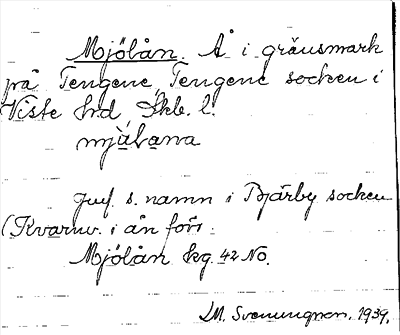 Mjölån. Å i gräusmark
på Tengene, Tengene socken i
Viste hrd, Skb. l.
mjö̀lana
Jmf. s. namn i Bjärby socken
(Kvarnv. i ån förr.
Mjölån kg. 42 No.
M. Svenungson. 1939.